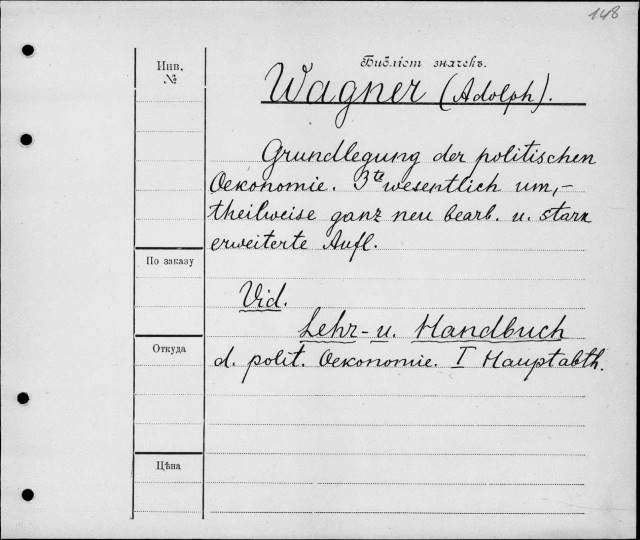 148
Библіот. значекъ.
Инв.
№
Wagner (Adolph).
Grundlegung der politischen
Oekonomie. 3te wesentlich um,-
theilweise ganz neu bearb. u. stark
erweiterte Aufl.
По заказу
Vid.
Lehr- u. Handbuch
Откуда
d. polit. Oekonomie. I Hauptabth.
Цѣна